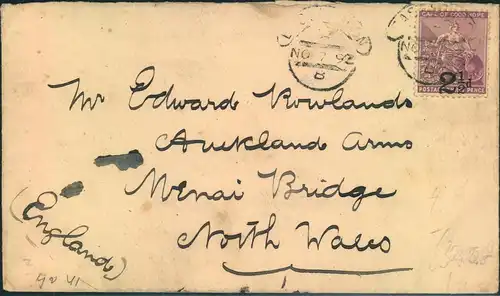 NO 92
B
CAPE OF GOOD HOPE
2½
POSTAGE
PENCE
Mr Edward Rowlands
Auckland Arms
Menai Bridge
North Wales
(England)